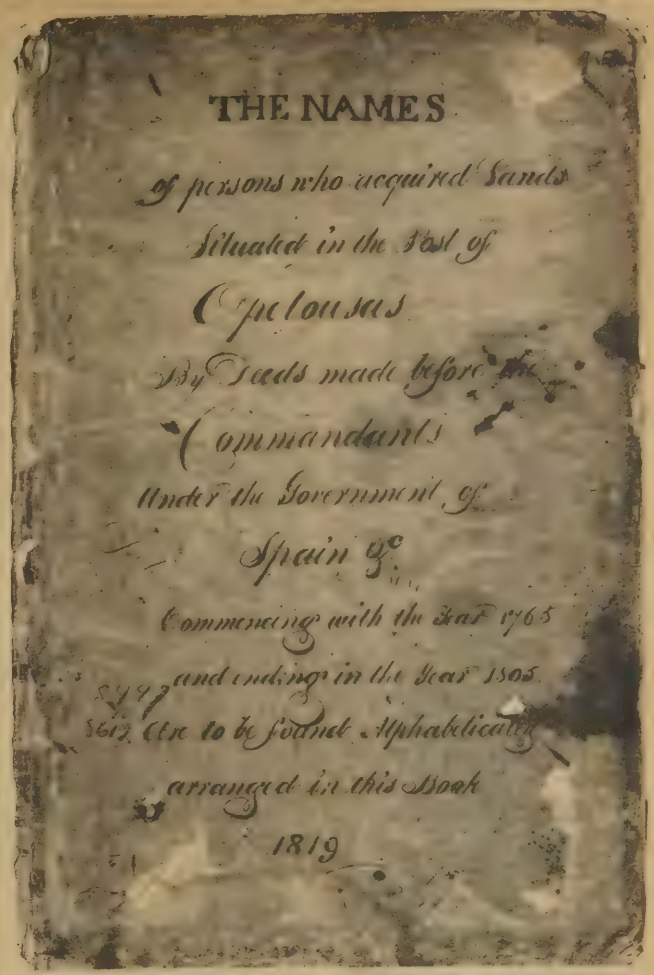 THE NAMES
of persons who acquired Lands
Situated in the Post of
Opelousas
By Deeds made before the
Commandants
Under the Government of
Spain &c.
Commencing with the Year 1765
and ending in the Year 1805.
Are to be found Alphabetically
arranged in this Book
1819